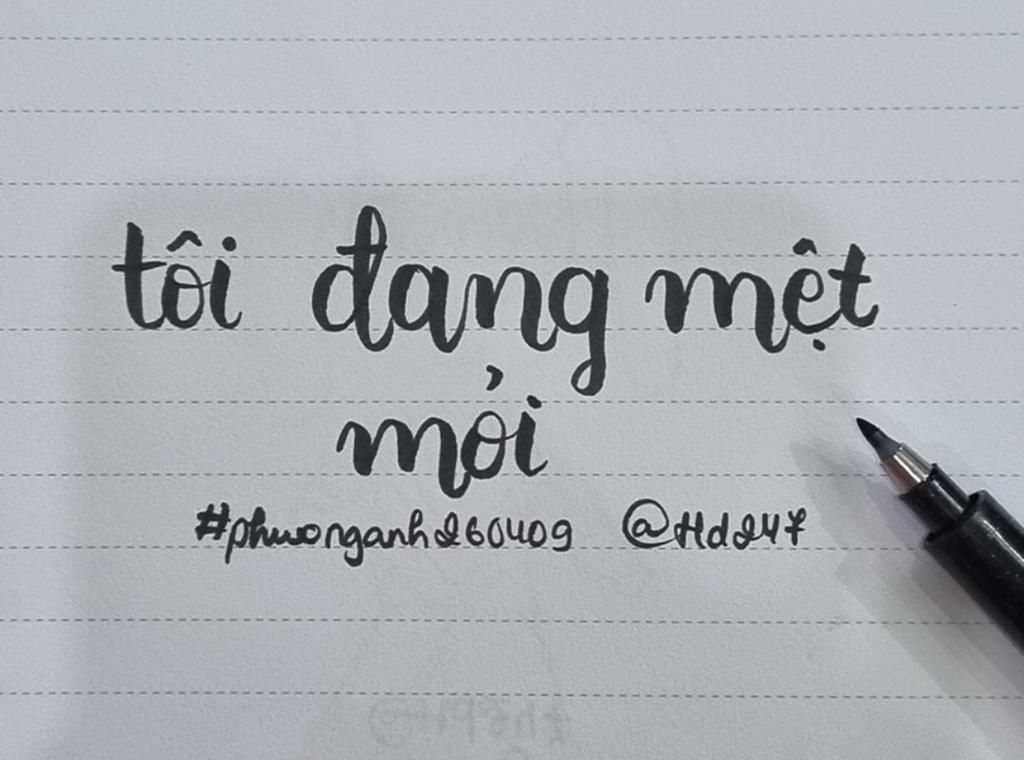 tôi đang mệt
mỏi
#phuonganh260409 @Hd247